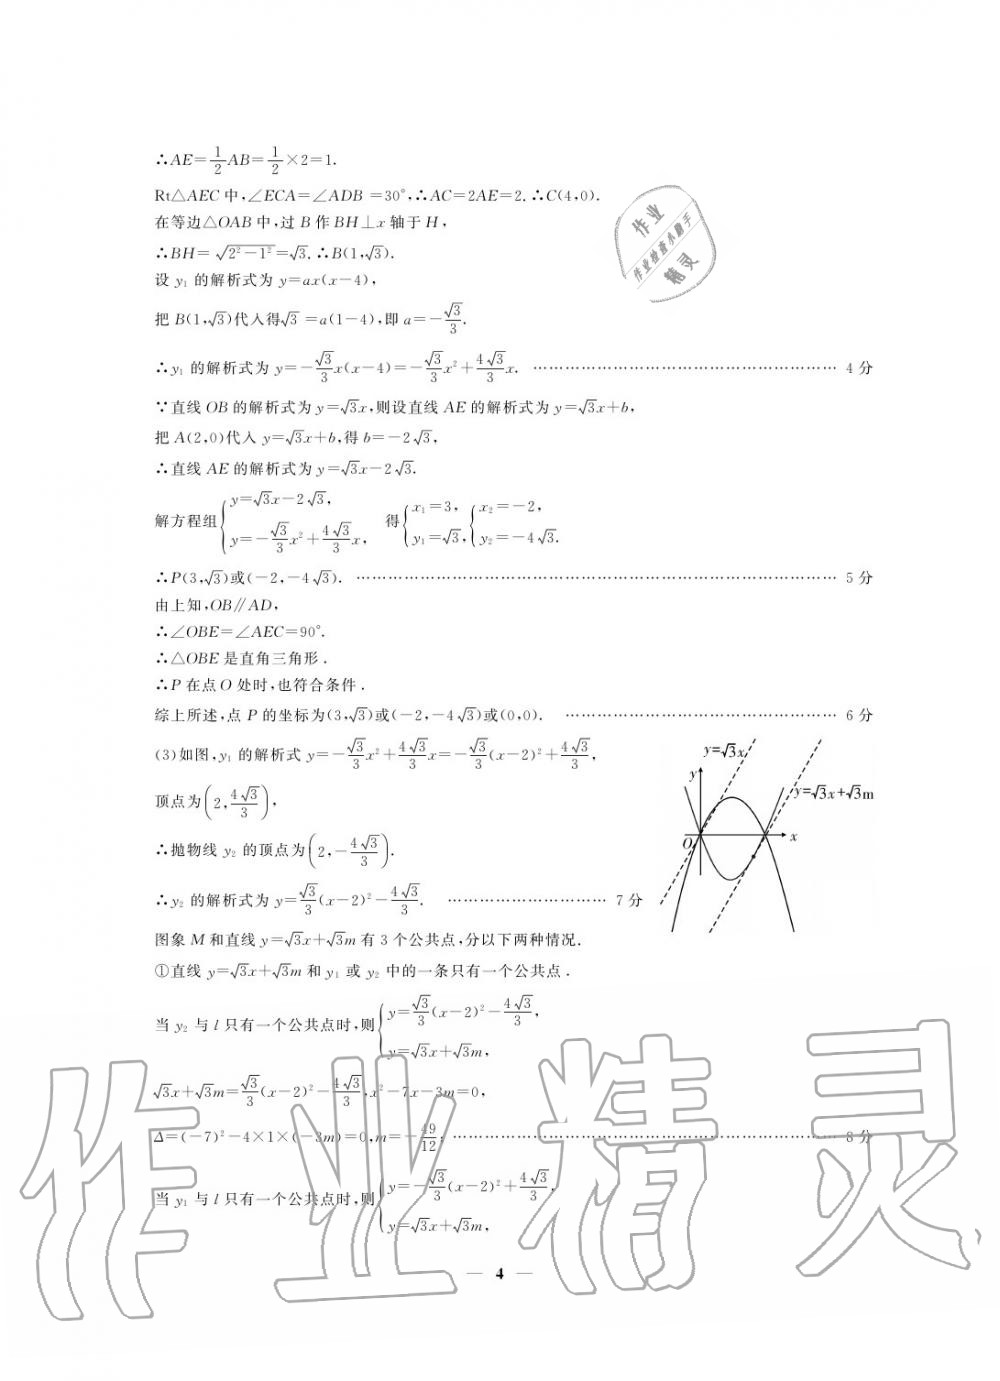 ∴AE=1/2AB=1/2×2=1.
Rt△AEC中,∠ECA=∠ADB=30°,∴AC=2AE=2.∴C(4,0).
在等边△OAB中,过B作BH⊥x轴于H,
∴BH=√(2²-1²)=√3.∴B(1,√3).
设y₁的解析式为y=ax(x-4),
把B(1,√3)代入得√3=a(1-4),即a=-√3/3.
∴y₁的解析式为y=-√3/3x(x-4)=-√3/3x²+4√3/3x. …… 4分
∵直线OB的解析式为y=√3x,则设直线AE的解析式为y=√3x+b,
把A(2,0)代入y=√3x+b,得b=-2√3,
∴直线AE的解析式为y=√3x-2√3.
解方程组{y=√3x-2√3, y=-√3/3x²+4√3/3x, 得{x₁=3, y₁=√3, {x₂=-2, y₂=-4√3.
∴P(3,√3)或(-2,-4√3). …… 5分
由上知,OB∥AD,
∴∠OBE=∠AEC=90°.
∴△OBE是直角三角形.
∴P在点O处时,也符合条件.
综上所述,点P的坐标为(3,√3)或(-2,-4√3)或(0,0). …… 6分
(3)如图,y₁的解析式y=-√3/3x²+4√3/3x=-√3/3(x-2)²+4√3/3,
顶点为(2,4√3/3),
∴抛物线y₂的顶点为(2,-4√3/3).
∴y₂的解析式为y=√3/3(x-2)²-4√3/3. …… 7分
图象M和直线y=√3x+√3m有3个公共点,分以下两种情况.
①直线y=√3x+√3m和y₁或y₂中的一条只有一个公共点.
当y₂与l只有一个公共点时,则{y=√3/3(x-2)²-4√3/3, y=√3x+√3m,
√3x+√3m=√3/3(x-2)²-4√3/3,x²-7x-3m=0,
Δ=(-7)²-4×1×(-3m)=0,m=-49/12; …… 8分
当y₁与l只有一个公共点时,则{y=-√3/3(x-2)²+4√3/3, y=√3x+√3m,
y=√3x
y
y=√3x+√3m
O
x
— 4 —
作业
作业检查小助手
精灵
作业精灵